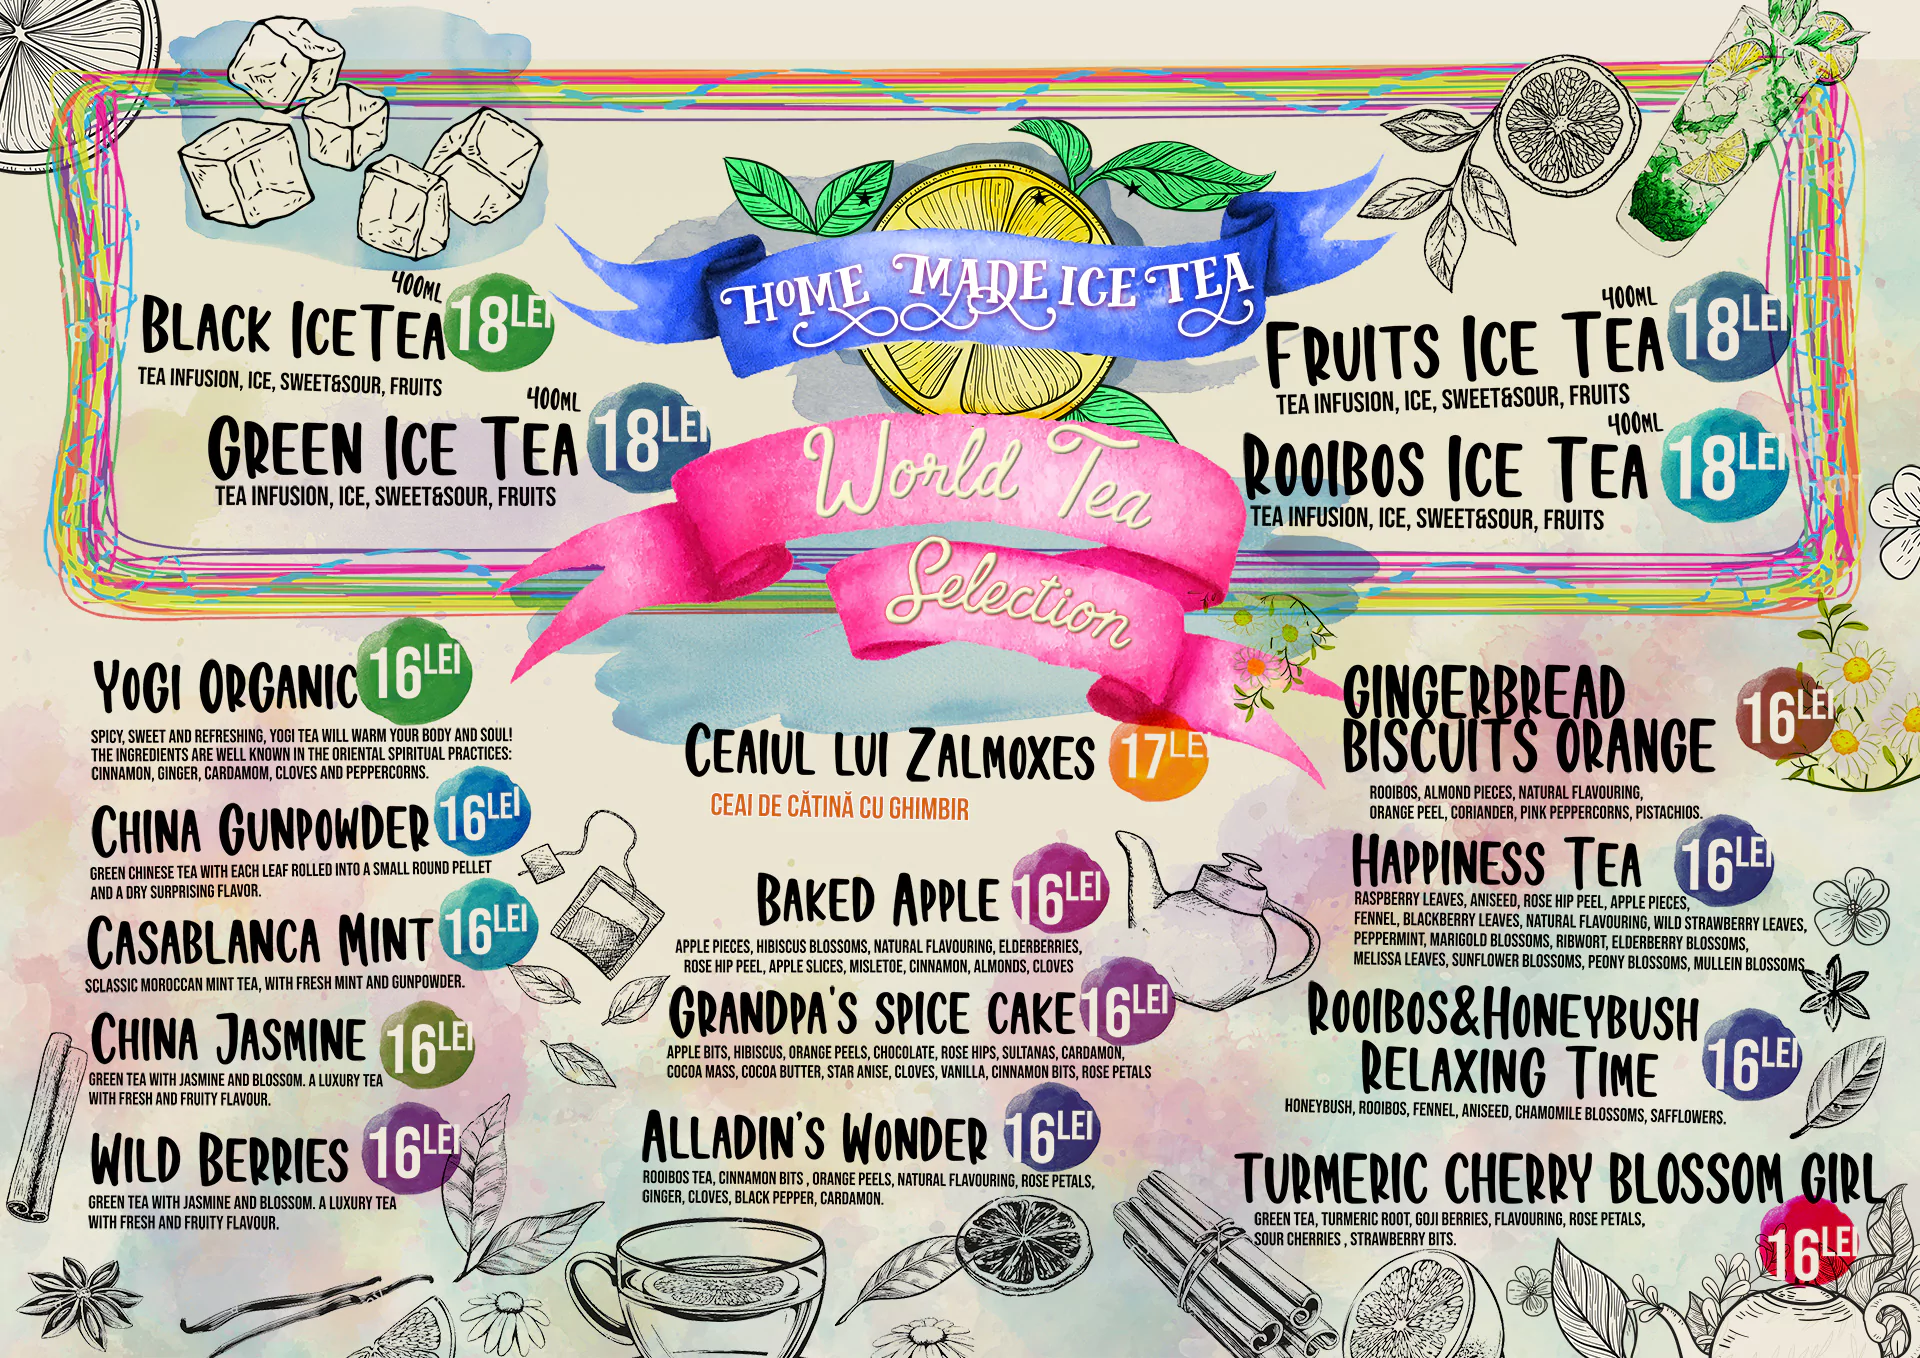 HOME MADE ICE TEA
400ML
BLACK ICETEA 18LEI
TEA INFUSION, ICE, SWEET&SOUR, FRUITS
400ML
GREEN ICE TEA 18LEI
TEA INFUSION, ICE, SWEET&SOUR, FRUITS
400ML
FRUITS ICE TEA 18LEI
TEA INFUSION, ICE, SWEET&SOUR, FRUITS
400ML
ROOIBOS ICE TEA 18LEI
TEA INFUSION, ICE, SWEET&SOUR, FRUITS
World Tea
Selection
YOGI ORGANIC 16LEI
SPICY, SWEET AND REFRESHING, YOGI TEA WILL WARM YOUR BODY AND SOUL!
THE INGREDIENTS ARE WELL KNOWN IN THE ORIENTAL SPIRITUAL PRACTICES:
CINNAMON, GINGER, CARDAMOM, CLOVES AND PEPPERCORNS.
CHINA GUNPOWDER 16LEI
GREEN CHINESE TEA WITH EACH LEAF ROLLED INTO A SMALL ROUND PELLET
AND A DRY SURPRISING FLAVOR.
CASABLANCA MINT 16LEI
SCLASSIC MOROCCAN MINT TEA, WITH FRESH MINT AND GUNPOWDER.
CHINA JASMINE 16LEI
GREEN TEA WITH JASMINE AND BLOSSOM. A LUXURY TEA
WITH FRESH AND FRUITY FLAVOUR.
WILD BERRIES 16LEI
GREEN TEA WITH JASMINE AND BLOSSOM. A LUXURY TEA
WITH FRESH AND FRUITY FLAVOUR.
CEAIUL LUI ZALMOXES 17LE
CEAI DE CĂTINĂ CU GHIMBIR
BAKED APPLE 16LEI
APPLE PIECES, HIBISCUS BLOSSOMS, NATURAL FLAVOURING, ELDERBERRIES,
ROSE HIP PEEL, APPLE SLICES, MISLETOE, CINNAMON, ALMONDS, CLOVES
GRANDPA'S SPICE CAKE 16LEI
APPLE BITS, HIBISCUS, ORANGE PEELS, CHOCOLATE, ROSE HIPS, SULTANAS, CARDAMON,
COCOA MASS, COCOA BUTTER, STAR ANISE, CLOVES, VANILLA, CINNAMON BITS, ROSE PETALS
ALLADIN'S WONDER 16LEI
ROOIBOS TEA, CINNAMON BITS , ORANGE PEELS, NATURAL FLAVOURING, ROSE PETALS,
GINGER, CLOVES, BLACK PEPPER, CARDAMON.
GINGERBREAD
BISCUITS ORANGE 16LEI
ROOIBOS, ALMOND PIECES, NATURAL FLAVOURING,
ORANGE PEEL, CORIANDER, PINK PEPPERCORNS, PISTACHIOS.
HAPPINESS TEA 16LEI
RASPBERRY LEAVES, ANISEED, ROSE HIP PEEL, APPLE PIECES,
FENNEL, BLACKBERRY LEAVES, NATURAL FLAVOURING, WILD STRAWBERRY LEAVES,
PEPPERMINT, MARIGOLD BLOSSOMS, RIBWORT, ELDERBERRY BLOSSOMS,
MELISSA LEAVES, SUNFLOWER BLOSSOMS, PEONY BLOSSOMS, MULLEIN BLOSSOMS
ROOIBOS&HONEYBUSH
RELAXING TIME 16LEI
HONEYBUSH, ROOIBOS, FENNEL, ANISEED, CHAMOMILE BLOSSOMS, SAFFLOWERS.
TURMERIC CHERRY BLOSSOM GIRL
GREEN TEA, TURMERIC ROOT, GOJI BERRIES, FLAVOURING, ROSE PETALS,
SOUR CHERRIES , STRAWBERRY BITS.
16LEI